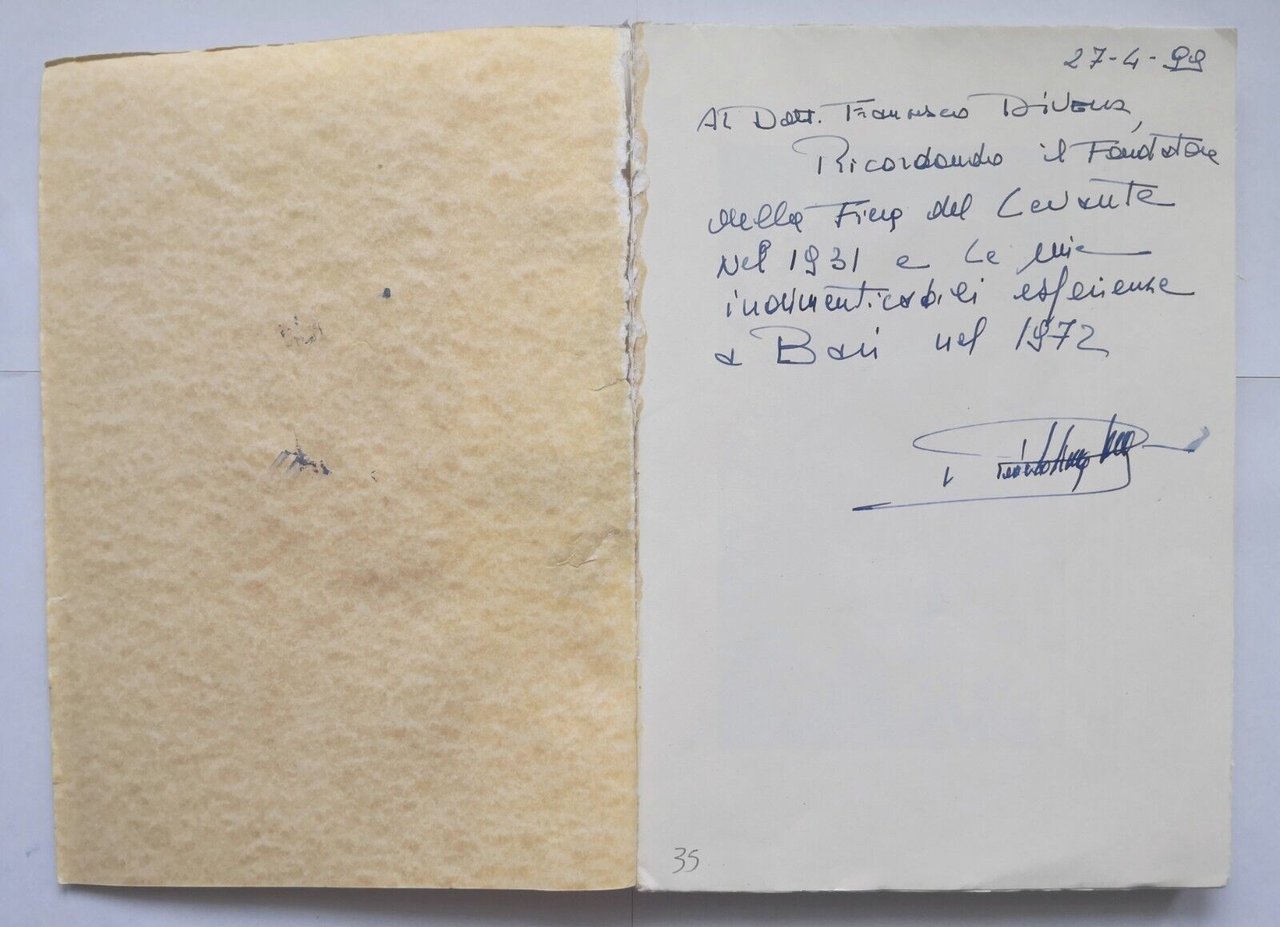 27-4-99
Al Dott. Francesco Divella,
Ricordando il Fondatore
della Fiera del Levante
nel 1931 e le mie
indimenticabili esperienze
a Bari nel 1972
35